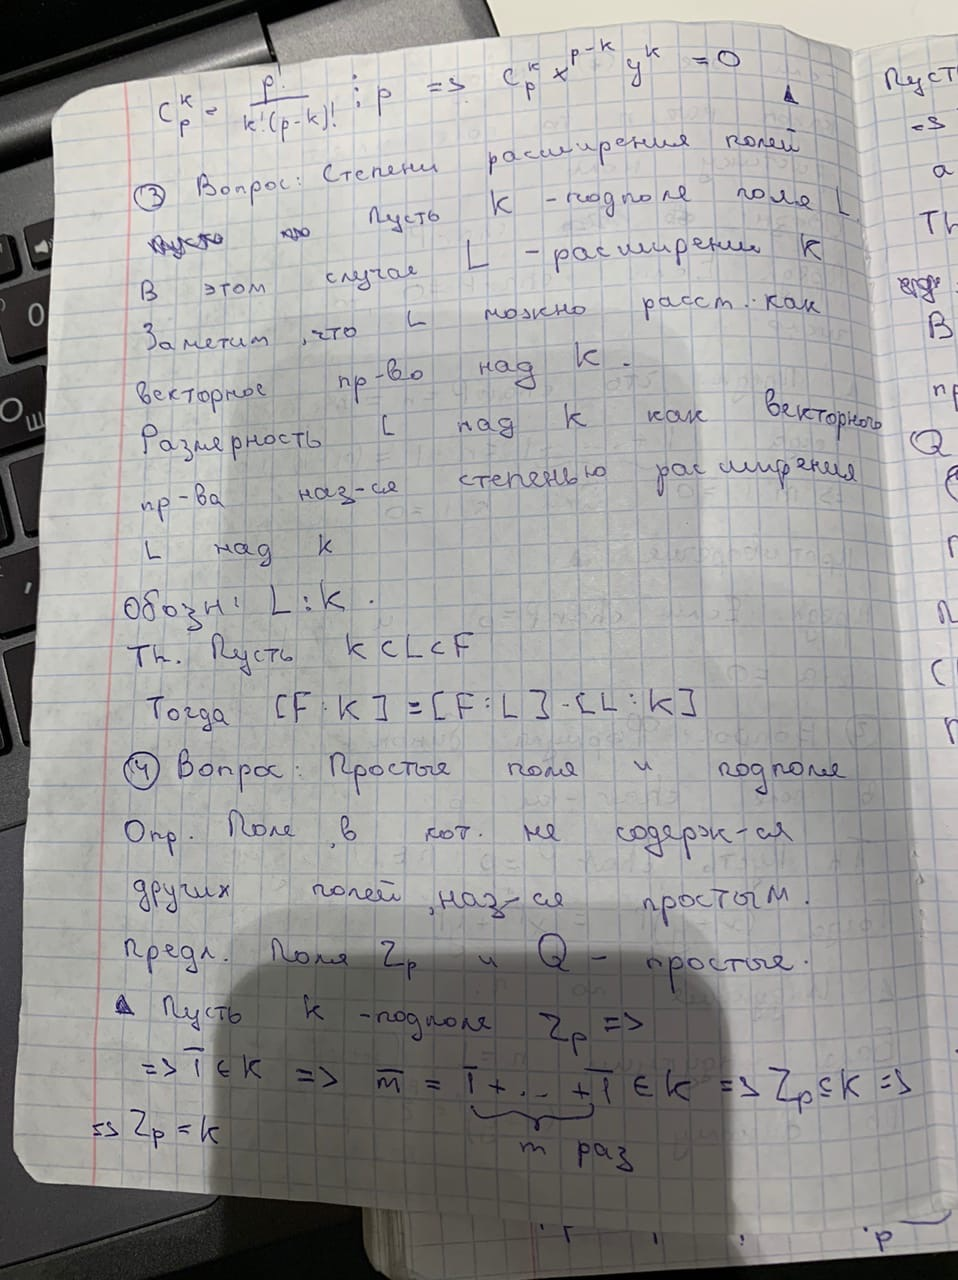 C_p^k = p!/(k!(p-k)!) ⋮ p => C_p^k x^{p-k} y^k = 0
▲
③ Вопрос: Степени расширения полей
Пусть K - подполе поля L.
В этом случае L - расширение K
Заметим, что L можно расст. как
векторное пр-во над K.
Размерность L над K как векторного
пр-ва наз-ся степенью расширения
L над K
Обозн: L:K.
Th. Пусть K ⊂ L ⊂ F
Тогда [F:K] = [F:L]·[L:K]
④ Вопрос: Простые поля и подполя
Опр. Поле, в кот. не содерж-ся
других полей, наз-ся простым.
Предл. Поля Z_p и Q - простые.
▲ Пусть K - подполе Z_p =>
=> 1̄ ∈ K => m̄ = 1̄ + ... + 1̄ ∈ K => Z_p ⊆ K =>
m раз
=> Z_p = K
Пусть
=>
а
Th
В
пр
Q